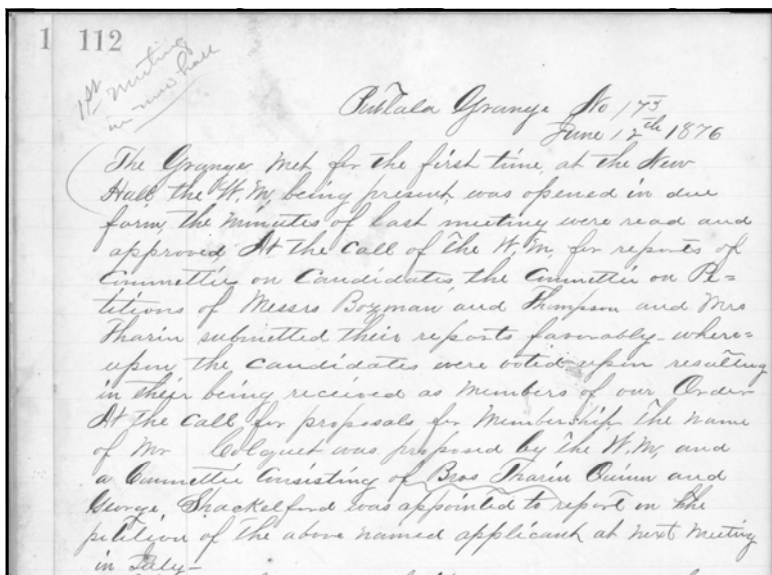 1 112
1st meeting
in new hall
Grange No 173
June 12th 1876
The Grange met for the first time, at the New
Hall, the W.M. being present, was opened in due
form, the minutes of last meeting were read and
approved At the call of the W.M. for reports of
Committee on Candidates, the Committee on Pe=
titions of Messrs Bozman, and Thompson and Mrs
Tharin submitted their reports favorably, where=
upon the candidates were voted upon resulting
in their being received as members of our Order
At the call for proposals for Membership, the name
of Mr Colquet was proposed by the W.M. and
a Committee Consisting of Bros Tharin Quinn and
George Shackelford was appointed to report on the
petition of the above named applicant at next meeting
in July-